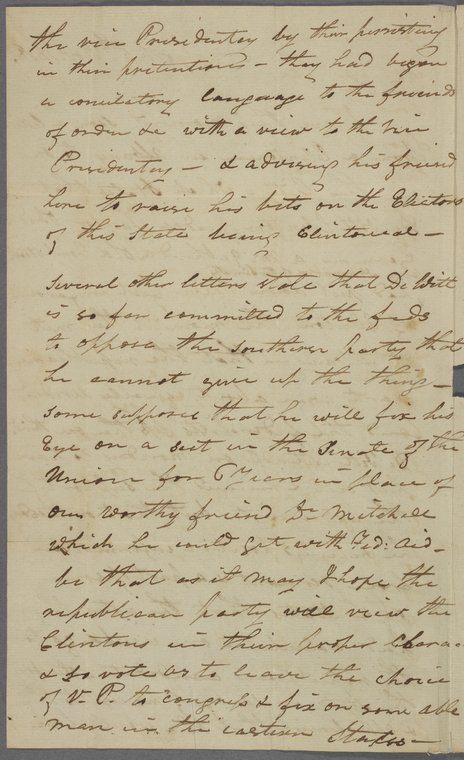 the vice Presidentcy by their persisting
in their pretentions - they had begun
a conciliatory language to the friends
of order &c with a view to the vice
Presidentcy - & advising his friend
here to raise his bets on the Electors
of this State being Clintonial -
Several other letters state that De Witt
is so far committed to the feds
to oppose the southern party that
he cannot give up the thing -
some suppose that he will fix his
Eye on a seat in the Senate of the
Union for 6 Years in place of
our worthy friend Dr Mitchell
which he could get with Fed: aid -
be that as it may I hope the
republican party will view the
Clintons in their proper
& so vote as to leave the choice
of V. P. to congress & fix on some able
man in the eastern States -